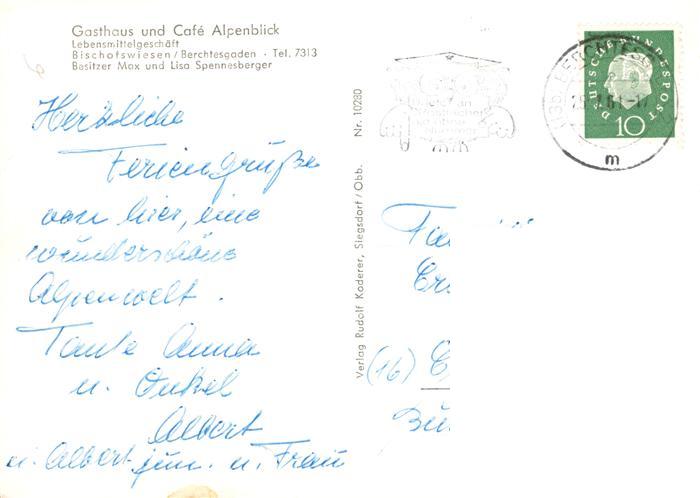 Gasthaus und Café Alpenblick
Lebensmittelgeschäft
Bischofswiesen / Berchtesgaden · Tel. 7313
Besitzer Max und Lisa Spennesberger
Herzliche
Feriengrüße
von hier, eine
wunderschöne
Alpenwelt.
Tante Anna
u. Onkel
Albert
u. Albert jun. u. Frau
Verlag Rudolf Koderer, Siegsdorf / Obb. Nr. 10280
DEUTSCHE BUNDESPOST
10
m
(16)